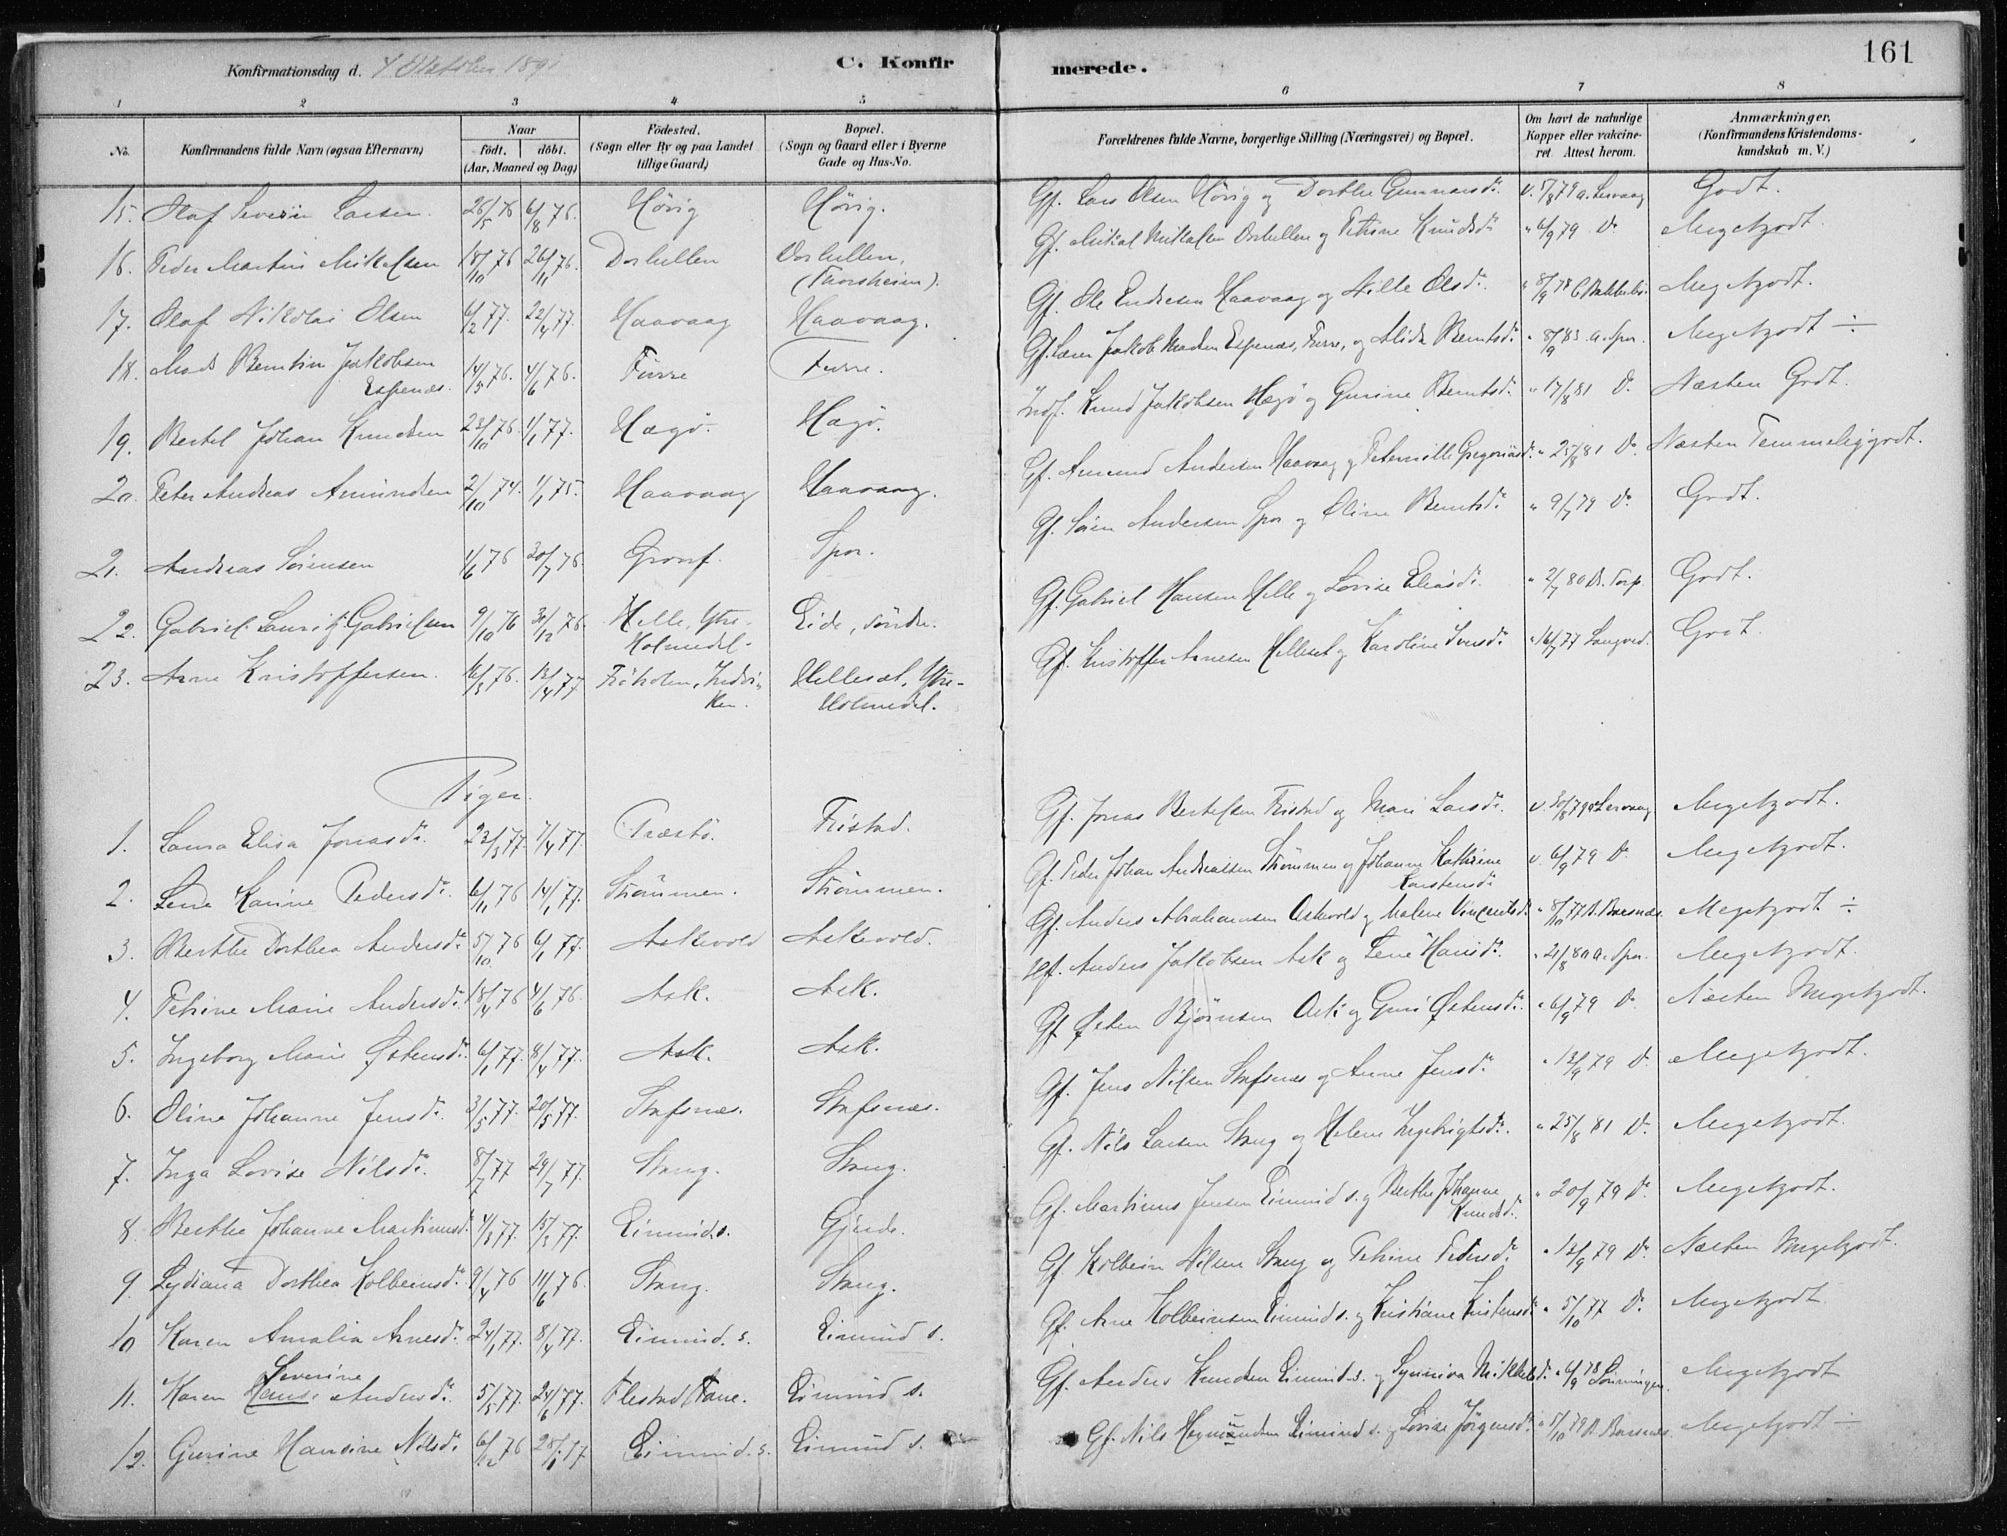 161
Konfirmationsdag d. 4 Oktober 1891
C. Konfirmerede.
1 2 3 4 5 6 7 8
No. Konfirmandens fulde Navn (ogsaa Efternavn) Naar født. døbt. (Aar, Maaned og Dag) Fødested. (Sogn eller By og paa Landet tillige Gaard) Bopæl. (Sogn og Gaard eller i Byerne Gade og Hus-No. Forældrenes fulde Navne, borgerlige Stilling (Næringsvei) og Bopæl. Om havt de naturlige Kopper eller vakcineret. Attest herom. Anmærkninger. (Konfirmandens Kristendomskundskab m. V.)
15. Olaf Severin Larsen. 26/5 76 6/8 76. Hövig Hövig. Gf. Lars Olsen Hövig og Dorthe Gunnarsd. Godt.
16. Peder Martin Mikkelsen 18/10 76 26/11 76. Gf. Mikkel Mikkelsen og Petrine Knudsd. " 6/9 79 Do Megetgodt.
(Thorsheim).
17. Olaf Nikolai Olsen 6/2 77. 22/4 77. Haavaag Haavaag. Gf. Ole Endresen Haavaag og Olsd. Megetgodt.
18. Mads Berntin Jakobsen Espenæs. 14/5 76. 4/6 76. Furre Furre. Jakob Madsen Espenæs, Furre, og Alida Berntsd. " 8/9 83 Megetgodt ÷
19. Bertel Johan Knudsen 23/10 76. 1/1 77. Hægö. Hægö. Indf. Knud Jakobsen Hægö og Gurine Berntsd. " 17/8 81 Do. Næsten Godt.
20. Peter Andreas Amundsen 2/10 74. 1/1 75. Haavaag Haavaag. Gf. Amund Andersen Haavaag og Peternille Gregoriusd. " 25/8 81 Do. Næsten Temmeliggodt.
21. Andreas Sörensen 4/6 76 30/7 76. Gronf. Spor. Gf. Sören Andersen Spor og Oline Berntsd. " 9/7 79 Do. Godt.
22. Gabriel Lauritz Gabrielsen 9/10 76 31/12 76. Helle, Ytre-Holmedal. Eide, söndre. Gf. Gabriel Hansen Helle og Lovise Eliasd. Godt.
23. Arne Kristoffersen. 13/4 77 Hellesæt, Ytre-Holmedal. Gf. Kristoffer Arnesen Helleset og Karoline Godt.
Piger.
1. Laura Elisa Jonasd. 23/3 77. 7/4 77 Tristad. Gf. Jonas Bertelsen Tristad og Mari Larsd. Megetgodt.
2. Lene Karine Pedersd. 6/11 76 14/1 77. Strömmen. Strömmen. Gf. Peder Johan Andreassen Strömmen og Johanne Kathrine Karstensd. v. 6/9 79 Do. Megetgodt.
3. Berthe Dorthea Andersd. 5/10 76 6/1 77. Askevold Askevold. Gf. Anders Abrahamsen Askvold og Malene Vincentsd. Megetgodt ÷
4. Petrine Marie Andersd. 18/4 76 4/6 76. Ask. Ask. Anders Jakobsen Ask og Lene Hansd. Megetgodt.
5. Ingeborg Marie Östensd. 6/1 77. 8/4 77. Ask. Ask. Gf. Östen Björnsen Ask og Guri Östensd. " 6/9 79 Do Næsten Megetgodt.
6. Oline Johanne Jensd. 3/5 77. 20/5 77. Stafsnæs. Stafsnæs. Gf. Jens Nilsen Stafsnæs og Anne Jensd. " 13/9 79 Do. Megetgodt.
7. Inga Lovise Nilsd. 8/7 77 29/7 77. Staug. Staug. Gf. Nils Larsen Staug og Helene Ingebrigtsd. " 25/8 81 Do. Megetgodt.
8. Berthe Johanne Martinusd. 4/3 77. 15/3 77. Eimind s. Gjerde. Gf. Martinus Jensen Eimind s. og Berthe Johanne Knudsd. " 20/9 79 Do. Megetgodt.
9. Lydiana Dorthea Kolbeinsd. 9/4 76 11/6 76. Staug. Staug. Gf. Kolbein Nilsen Staug og Petrine Pedersd. " 13/9 79 Do. Næsten Megetgodt.
10 Karen Amalia Arnesd. 24/1 77. 8/4 77. Eimind. s. Eimind s. Gf. Arne Kolbeinsen Eimind s. og Kristiane Kristensd. " 5/10 77 Do. Megetgodt
11. Karen Severine Andersd. 5/5 77. 24/6 77. Eimind s. Gf. Anders Knudsen Eimind s. og Synneva Mikkelsd. " 6/9 78 Megetgodt
12. Gurine Hansine Nilsd. 6/12 76 Eimind. s. Eimind s. Gf. Nils Eimind s. og Lovise Jörgensd. Megetgodt ÷